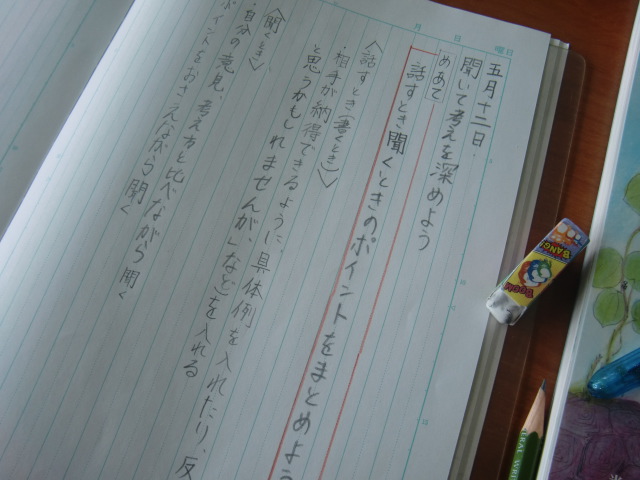 月 日 曜日
五月十二日
聞いて考えを深めよう
めあて
話すとき聞くときのポイントをまとめよう
〈話すとき(書くとき)〉
・相手が納得できるように、具体例を入れたり、反
と思うかもしれませんが、」など)を入れる
〈聞くとき〉
・自分の意見、考え方と比べながら聞く
ポイントをおさえながら聞く
BOOM
BANG!